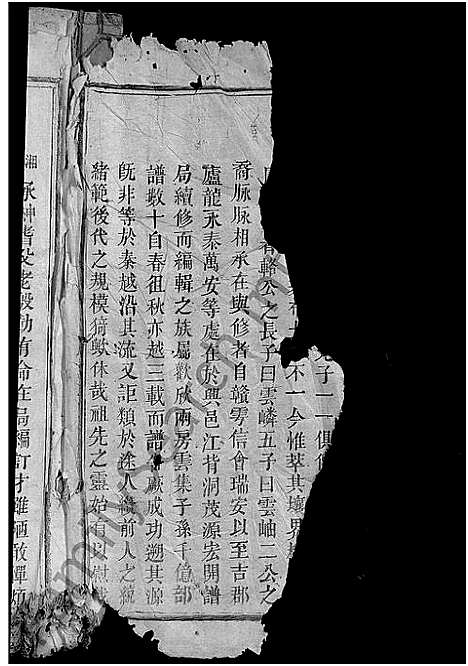 子一一俱
不一今惟萃其壤界
輅公之長子曰雲嶙五子曰雲岫二公之
裔脉脉相承在與修者自贛雩信會瑞安以至吉郡
廬龍永泰萬安等處在於興邑江背洞茂源宏開譜
局續修而編輯之族屬歡欣兩房雲集子孫千億部
譜數十自春徂秋亦越三載而譜厥成功遡其源
既非等於秦越沿其流又詎類於途人纘前人之
緒範後代之規模猗歟休哉祖先之靈始有以慰哉
湘
承紳耆父老殷勤有侖在局編訂才雖陋敢憚煩